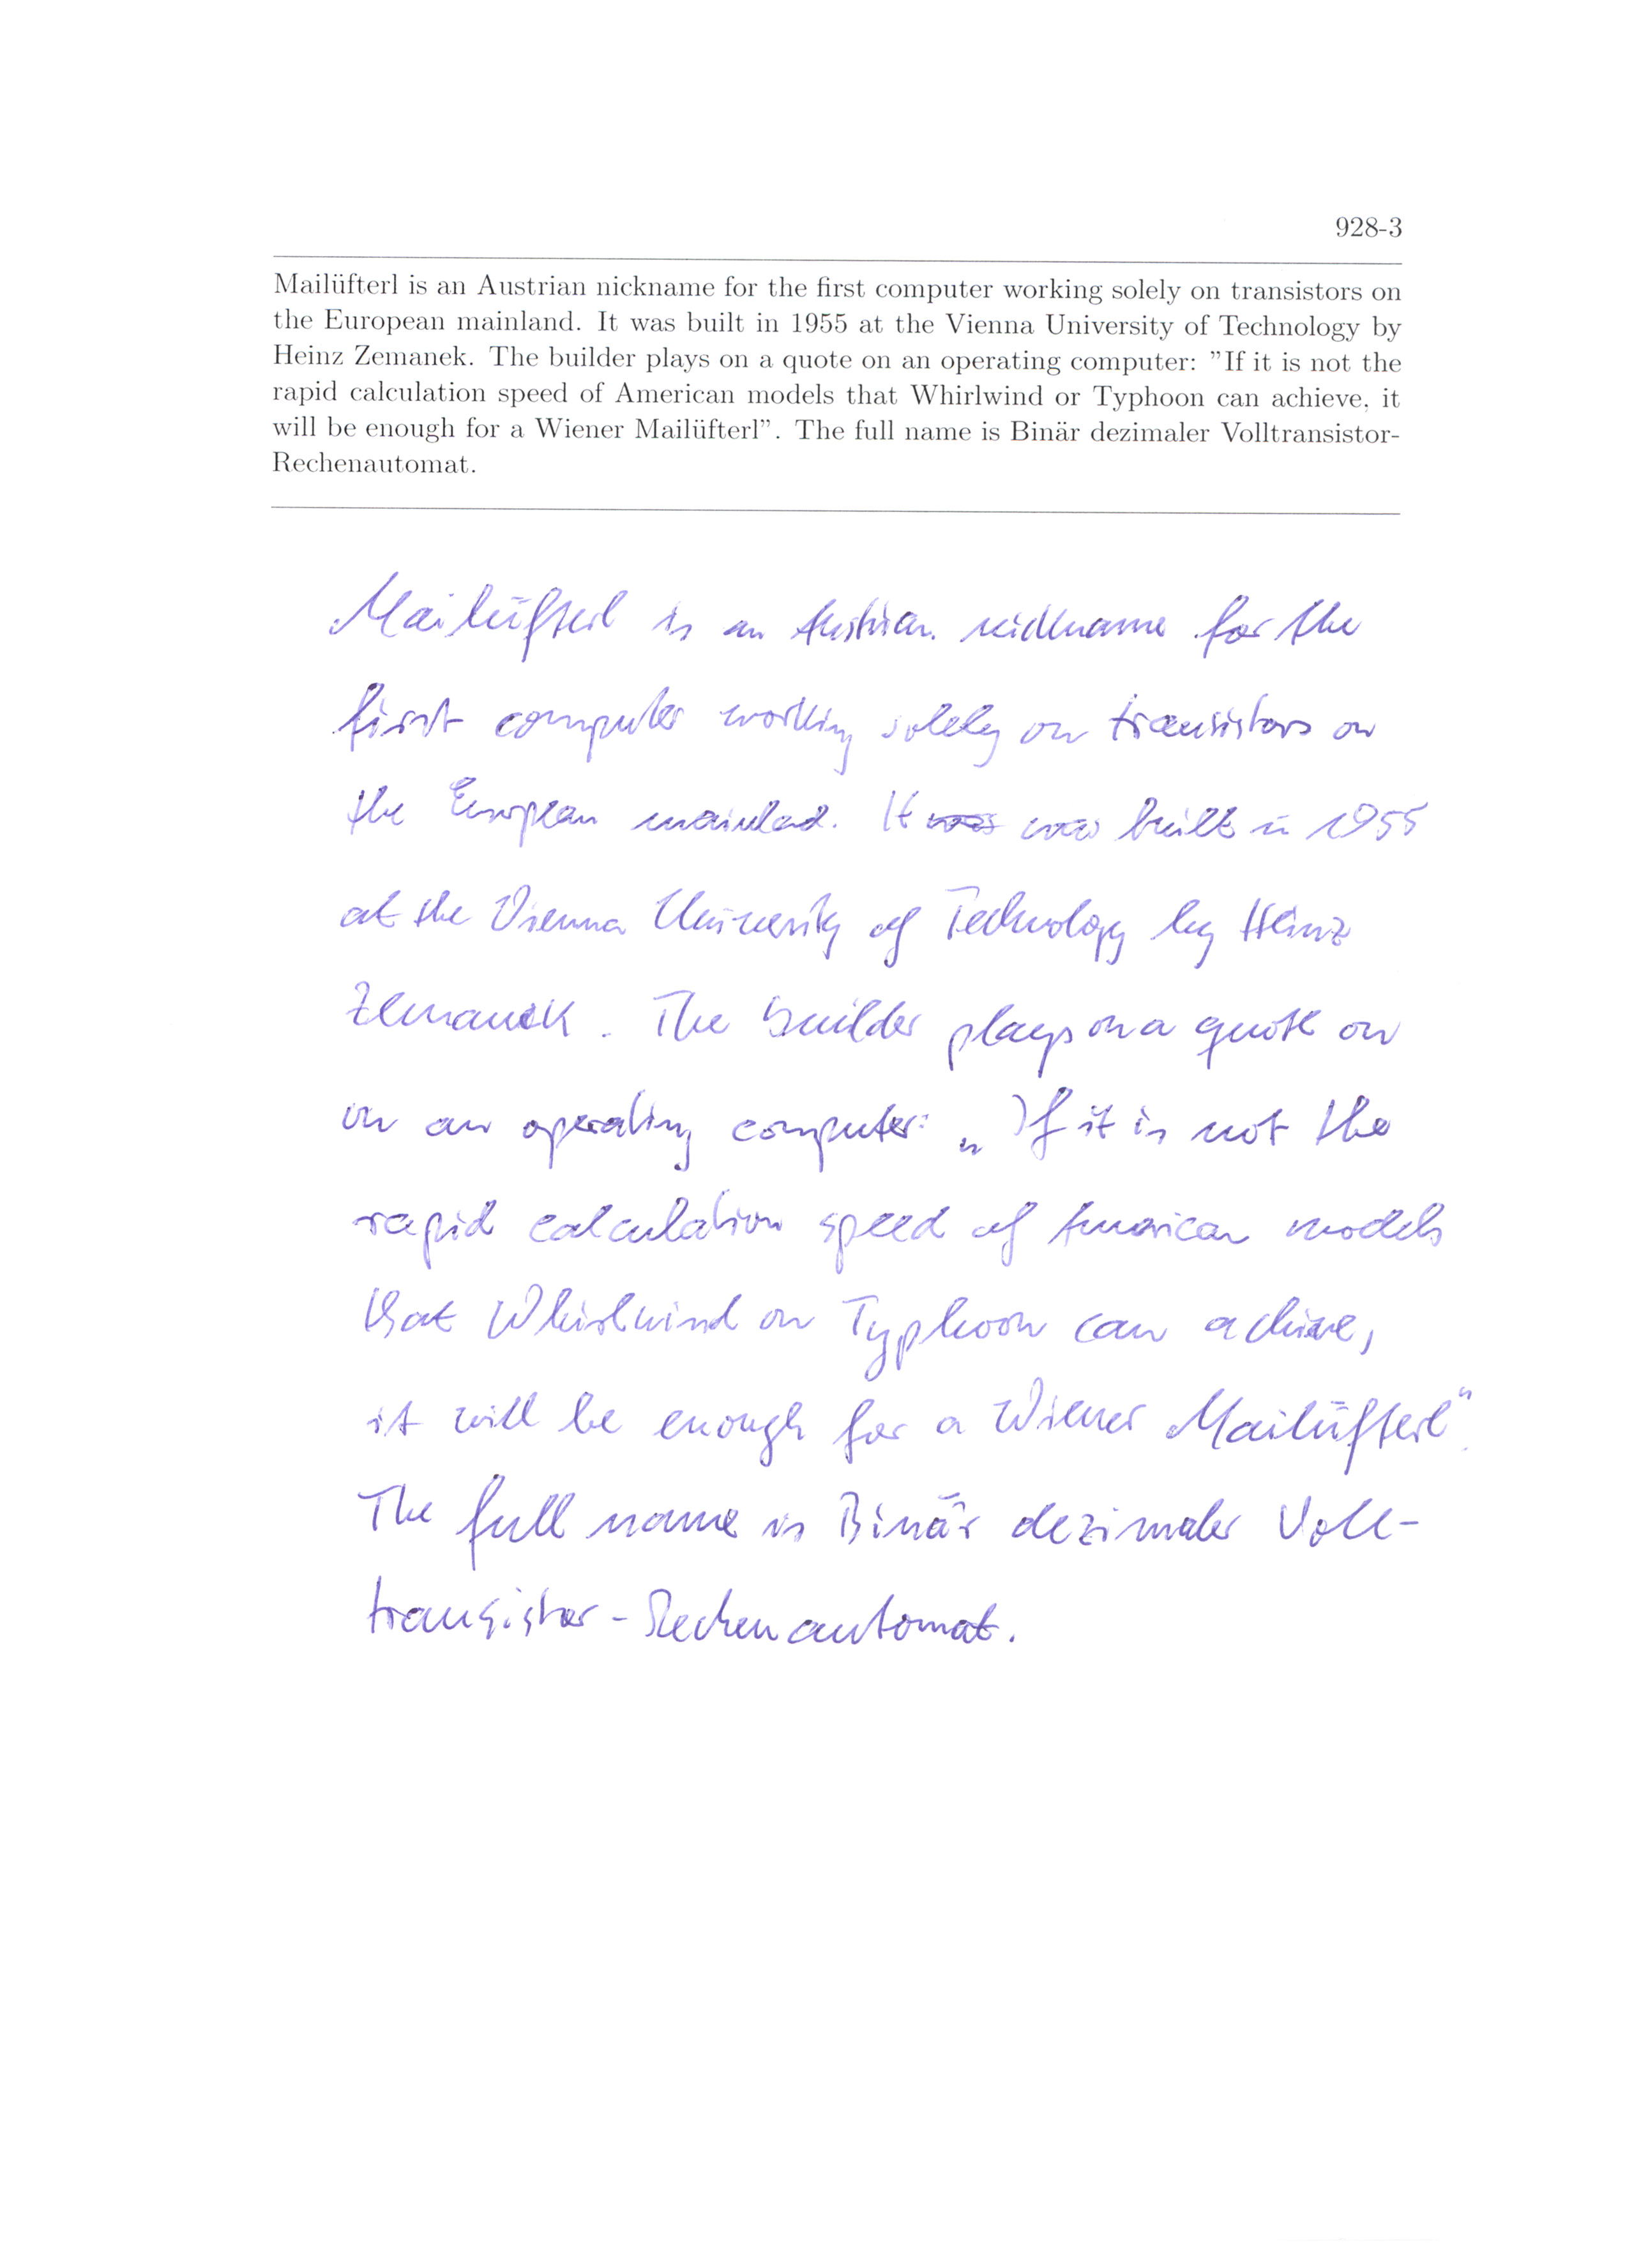 928-3
Mailüfterl is an Austrian nickname for the first computer working solely on transistors on
the European mainland. It was built in 1955 at the Vienna University of Technology by
Heinz Zemanek. The builder plays on a quote on an operating computer: ”If it is not the
rapid calculation speed of American models that Whirlwind or Typhoon can achieve, it
will be enough for a Wiener Mailüfterl”. The full name is Binär dezimaler Volltransistor-
Rechenautomat.
Mailüfterl is an Austrian nickname for the
first computer working solely on transistors on
the European mainlad. It was was built in 1955
at the Vienna University of Technology by Heinz
Zemanek. The builder plays on a quote on
on an operating computer: „If it is not the
rapid calculation speed of American models
that Whirlwind on Typhoon can achive,
it will be enough for a Wiener Mailüfterl“.
The full name is Binär dezimaler Voll-
transistor-Rechenautomat.